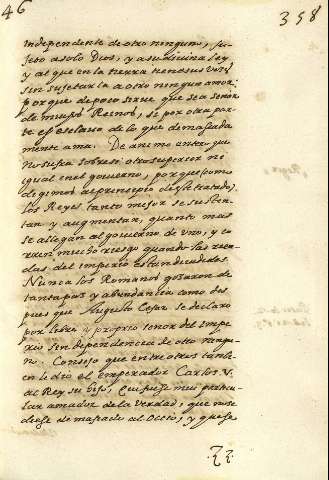 46
358
independente de otro ninguno, su-
jeto a solo Dios, y a su divina ley
y al que en la tierra tiene sus veces
sin sujetar la a otro ningun amor:
porque de poco sirve que sea señor
de muchos Reinos, se por otra par-
te es esclavo de lo que demasiada
mente ama. De animo entero, que
no sufra sobre si otro superior ni
igual en el govierno, porque (como
degimos al principio deste tratado)
los Reyes tanto mejor se susten-
tan y augmentan, quanto mas
se allegan al govierno de uno, y co-
rren mucho riesgo quando las rien-
das del imperio estan divididas.
Nunca los Romanos gozaron de
tanta paz y abundancia como des
pues que Augusto Cesar se declaro
por libre y proprio señor del impe-
rio sin dependencia de otro ningu-
no. Consejo que entre otros tambi-
en le dio el emperador Carlos V.
al Rey su hijo, que fuese mui particu-
lar amador de la verdad, que no se
diese demasiado al Occio, y que se